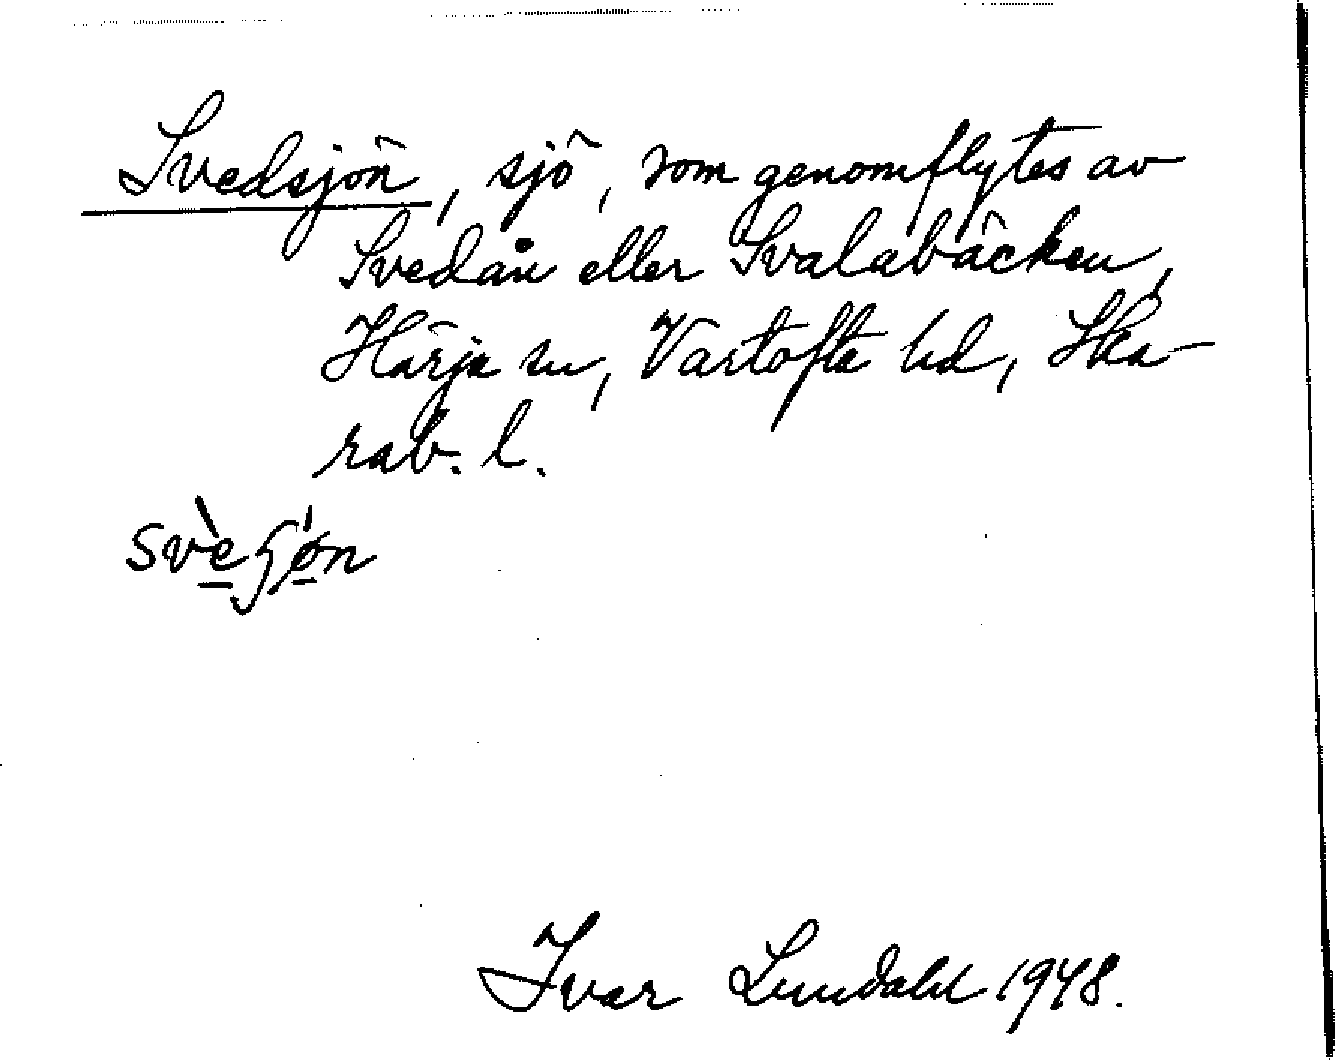 Svedsjön, sjö, som genomflytes av
Svedån eller Svalabäcken,
Härja sn, Vartofta hd, Ska-
rab. l.
Ivar Lundahl 1948.